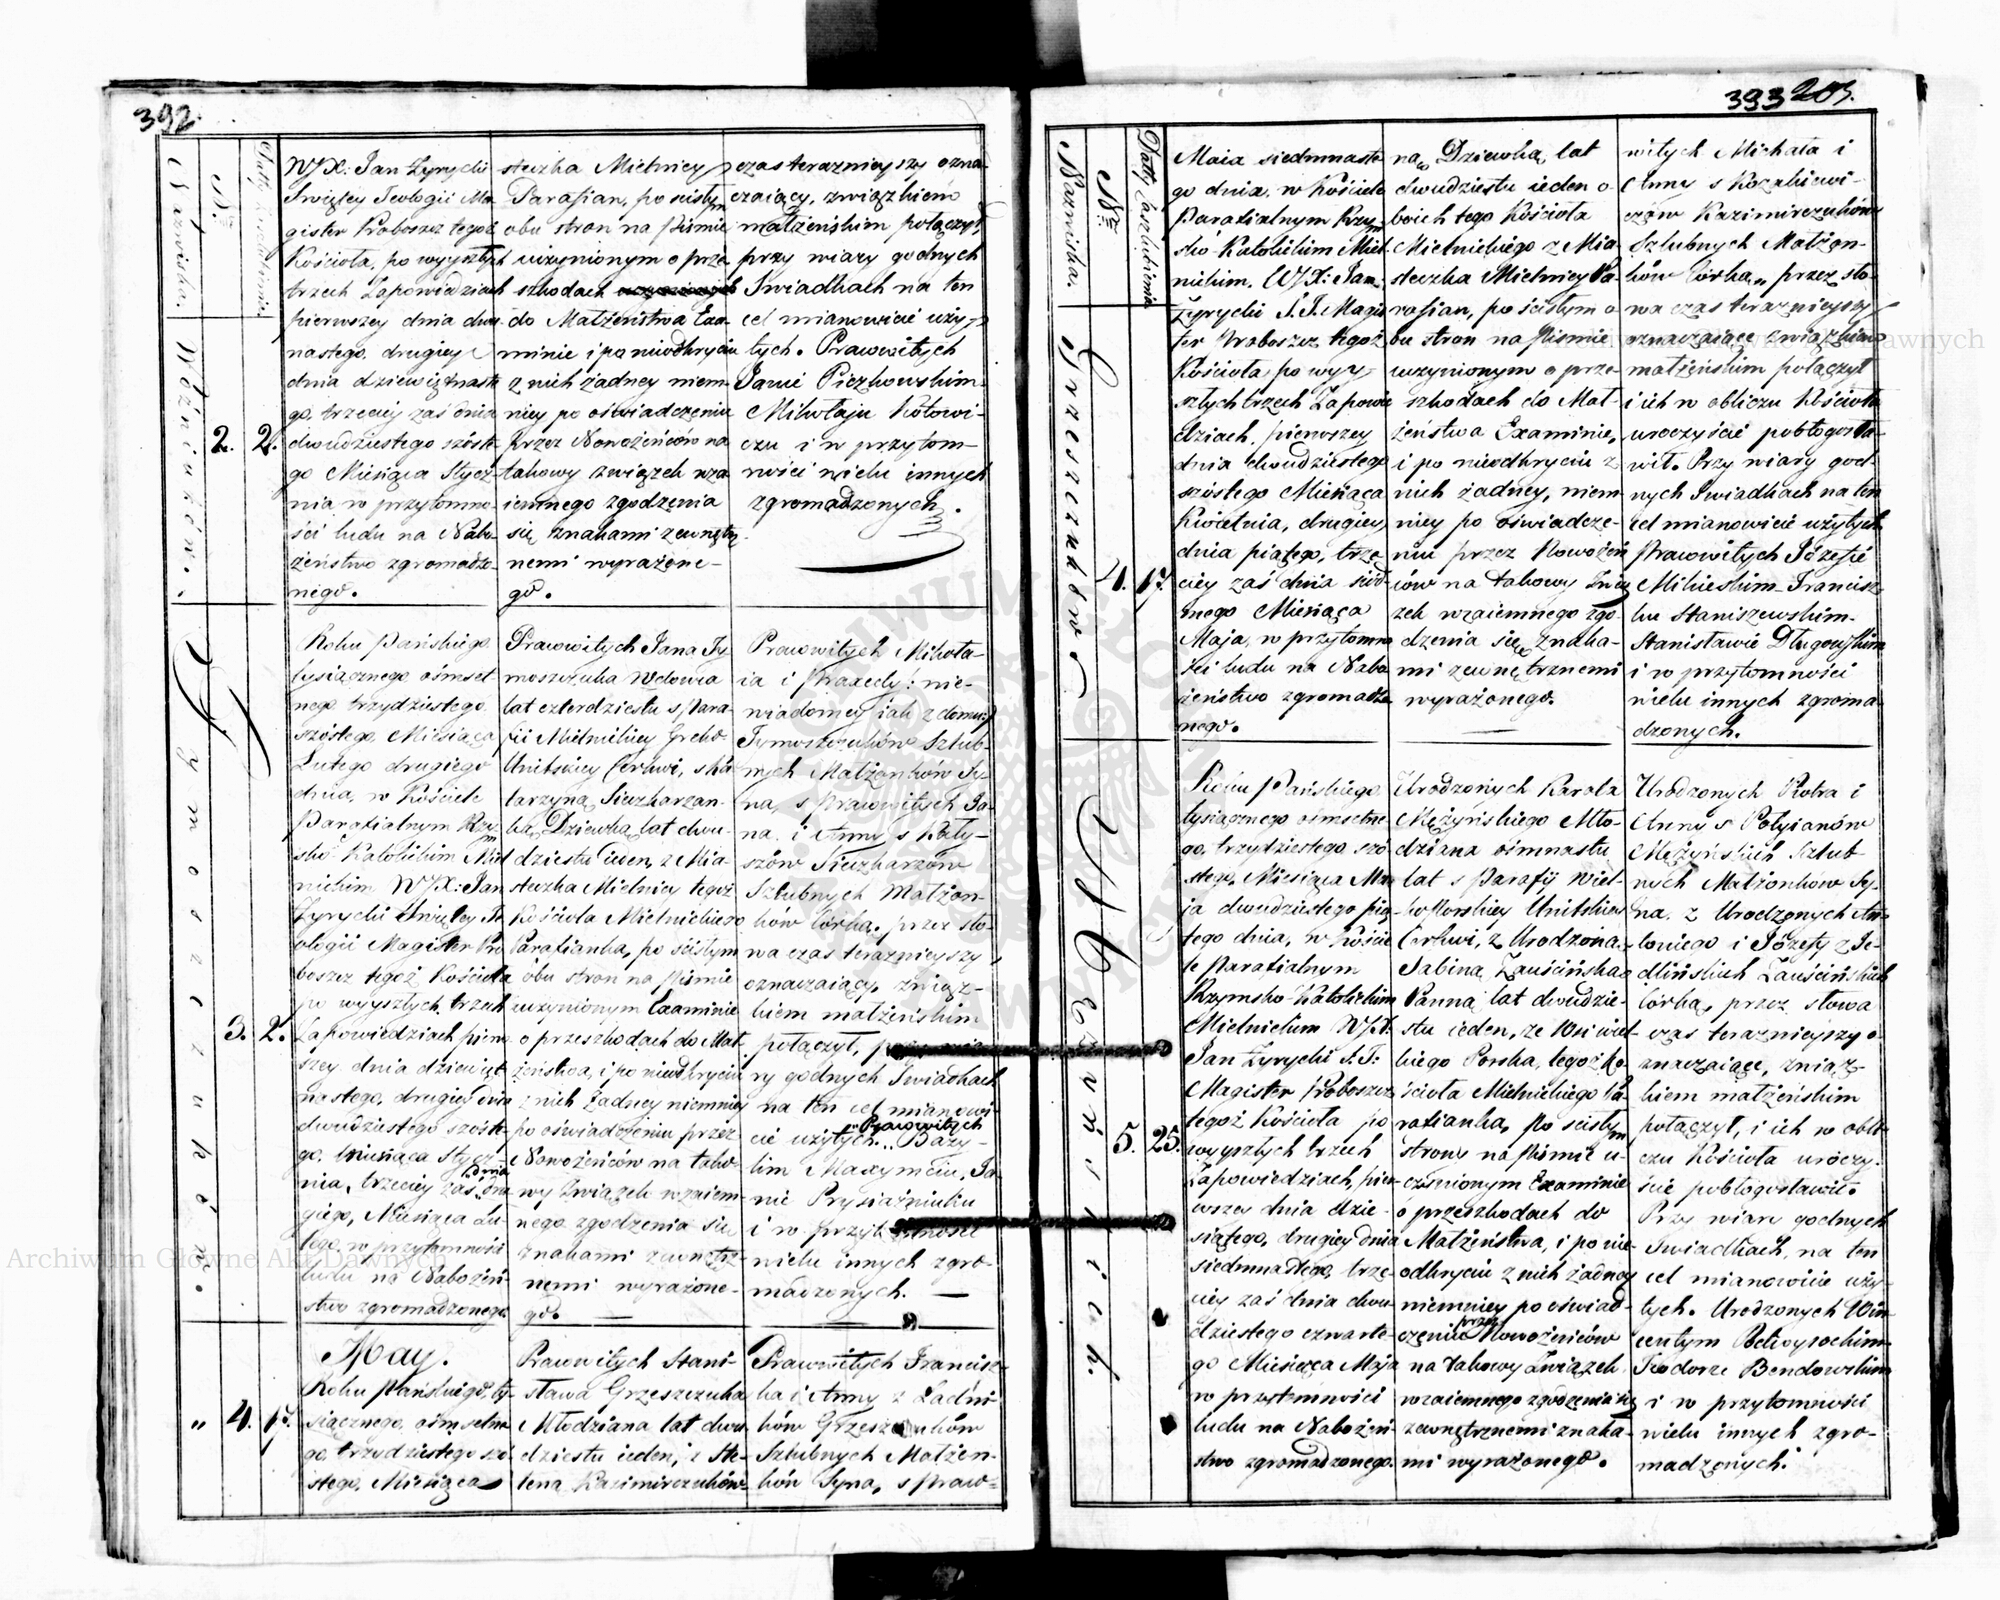 392.
Nazwiska.
N.
Woźniaków.
2.
2.
WJX: Jan Żyrycki
Swiętey Teologii Ma
gister Proboszcz tegoż
Kościoła, po wyyszłych
trzech Zapowiedziach
pierwszey dnia dwu
nastego, drugiey
dnia dziewiętnaste
go, trzeciey zaś dnia
dwudziestego szóste
go Miesiąca Stycz-
nia w przytomno
ści ludu na Nabo-
żeństwo zgromadzo-
nego.
steczka Mielnicy
Parafian, po scisłym
obu stron na Piśmie
uczynionym o prze
szkodach
do Małżeństwa Exa-
minie i po nieodkryciu
z nich żadney niem-
niey po oświadczeniu
przez Nowożeńców na
takowy związek wza
iemnego zgodzenia
się znakami zewnętrz
nemi wyrażone-
go.
czas teraznieyszy ozna-
czaiący, związkiem
małżeńskim połączył,
przy wiary godnych
Swiadkach na ten
cel mianowicie uży-
tych. Prawowitych
Janie Piczkowskim
Mikołaju Kotowi-
czu i w przytom-
ności wielu innych
zgromadzonych.
Tymoszczuków.
3.
2.
Roku Pańskiego
tysiącznego ośmset
nego trzydziestego
szóstego, Miesiąca
Lutego drugiego
dnia, w Kościele
Parafialnym Rzym
sko Katolickim Miel
nickim WJX: Jan
Żyrycki Swiętey Te
ologii Magister Pro
boszcz tegoż Kościoła
po wyyszłych trzech
Zapowiedziach pierw
szey dnia dziewięt
nastego, drugiey dnia
dwudziestego szóste
go, miesiąca Stycz-
nia, trzeciey zaś dnia dru
giego, Miesiąca Lu-
tego, w przytomności
ludu na Nabożeń-
stwo zgromadzonego.
Prawowitych Jana Ty
moszczuka Wdowca
lat czterdziestu s Para
fii Mielnickiey Greko-
Unitskiey Cerkwi, s Ka
tarzyną Siczkarzan-
ką Dziewką lat dwu-
dziestu ieden, z Mia-
steczka Mielnicy tegoż
Kościoła Mielnickiego
Parafianką, po scisłym
obu stron na Piśmie
uczynionym Examinie
o przeszkodach do Mał
żeństwa, i po nieodkryciu
z nich żadney niemniey
po oświadczeniu przez
Nowożeńców na tako-
wy związek wzaiem-
nego zgodzenia się
znakami zewnętrz-
nemi wyrażone-
go. —
Prawowitych Mikoła-
ia i Praxedy: nie-
wiadomey iak z domu:
Tymoszczuków Szlub-
nych Małżonków Sy-
na, s Prawowitych Ja-
na i Anny s Koły-
szów Siczkarzów
Szlubnych Małżon-
ków Córką, przez sło-
wa czas teraznieyszy
oznaczaiący, związ-
kiem małżeńskim
połączył,
ry godnych Swiadkach
na ten cel mianowi-
cie użytych.. Prawowitych Bazy-
lim Maxymciu, Ja-
nie Prysiażniuku
i w przytomności
wielu innych zgro-
madzonych. —
„
4.
17.
May.
Roku Pańskiego, ty-
siącznego, ośmsetne
go, trzydziestego szó
stego, Miesiąca
Prawowitych Stani-
sława Grzeszczuka
Młodziana lat dwu
dziestu ieden, i He-
leną Kazimirczuków-
Prawowitych Francisz-
ka i Anny z Ładni
ków Grzeszczuków
Szlubnych Małżon-
ków Syna, s Praw-
393
203.
Nazwiska.
N.
Datty Zaszlubienia
Grzeszczuków
4.
17.
Maia siedmnaste
go dnia, w Kościele
Parafialnym Rzym
sko-Katolickim Miel
nickim. WJX: Jan
Żyrycki S.T. Magis
ter Proboszcz tegoż
Kościoła po wyy
szłych trzech Zapowie
dziach, pierwszey
dnia dwudziestego
szóstego Miesiąca
Kwietnia, drugiey
dnia piątego, trze
ciey zaś dnia siód-
mego Miesiąca
Maja, w przytomno
ści ludu na Nabo
żeństwo zgromadzo
nego.
ną, Dziewką, lat
dwudziestu ieden o
boich tego Kościoła
Mielnickiego z Mia
steczka Mielnicy Pa-
rafian, po ścisłym o
bu stron na Piśmie
uczynionym o prze
szkodach do Mał-
żeństwa Examinie,
i po nieodkryciu z
nich żadney, niem
niey po oświadcze-
niu przez Nowożeń
ców na takowy Zwią
zek wzaiemnego zgo
dzenia się, znaka-
mi zewnętrznemi
wyrażonego.
witych Michała i
Anny s Kozubiewi-
czów Kazimirczuków
Szlubnych Małżon-
ków Córką, przez sło-
wa czas teraznieyszy
oznaczaiące związkiem
małżeńskim połączył
i ich w obliczu Kościoła
uroczyście pobłogosła-
wił. Przy wiary god-
nych Swiadkach na ten
cel mianowicie użytych
Prawowitych Józefie
Milieskim Francisz
ku Staniszewskim
Stanisławie Długowskim
i w przytomności
wielu innych zgroma
dzonych.
5.
25.
Roku Pańskiego
tysiącznego ośmsetne
go, trzydziestego szó
stego, Miesiąca Ma
ja dwudziestego pią-
tego dnia, w Koście
le Parafialnym
Rzymsko-Katolickim
Mielnickim WJX:
Jan Żyrycki S.T:
Magister Proboszcz
tegoż Kościoła po
wyyszłych trzech
Zapowiedziach, pier
wszey dnia dzie-
siątego, drugiey dnia
siedmnastego, trze-
ciey zaś dnia dwu-
dziestego czwarte-
go Miesiąca Maja
w przytomności
ludu na Nabożeń
stwo zgromadzonego.
Urodzonych Karola
Mężyńskiego Mło-
dziana ośmnastu
lat s Parafij Wiel-
ko Porskiey Unitskiey
Cerkwi, z Urodzoną
Sabiną Zauścińską
Panną lat dwudzie-
stu ieden, ze Wsi Wiel-
kiego Porska, tegoż Ko-
ścioła Mielnickiego Pa-
rafianką, po scisłym
strony na Piśmie u-
czynionym Examinie
o przeszkodach do
Małżeństwa, i po nie-
odkryciu z nich żadney
niemniey po oświad-
czeniu przez Nowożeńców
na takowy Związek
wzaiemnego zgodzenia się
zewnętrznemi znaka-
mi wyrażonego.
Urodzonych Piotra i
Anny s Połyianów
Mężyńskich Szlub-
nych Małżonków Sy-
na, z Urodzonych An-
toniego i Józefy z Je-
dlińskich Zauścińskich
Córką, przez słowa
czas teraznieyszy o-
znaczaiące, związ-
kiem małżeńskim
połączył, i ich w obli-
czu Kościoła uroczy-
ście pobłogosławił.
Przy wiary godnych
Swiadkach, na ten
cel mianowicie uży-
tych. Urodzonych Win
centym
Teodorze Bendowskim
i w przytomności
wielu innych zgro-
madzonych.
Archiwum Główne Akt Dawnych